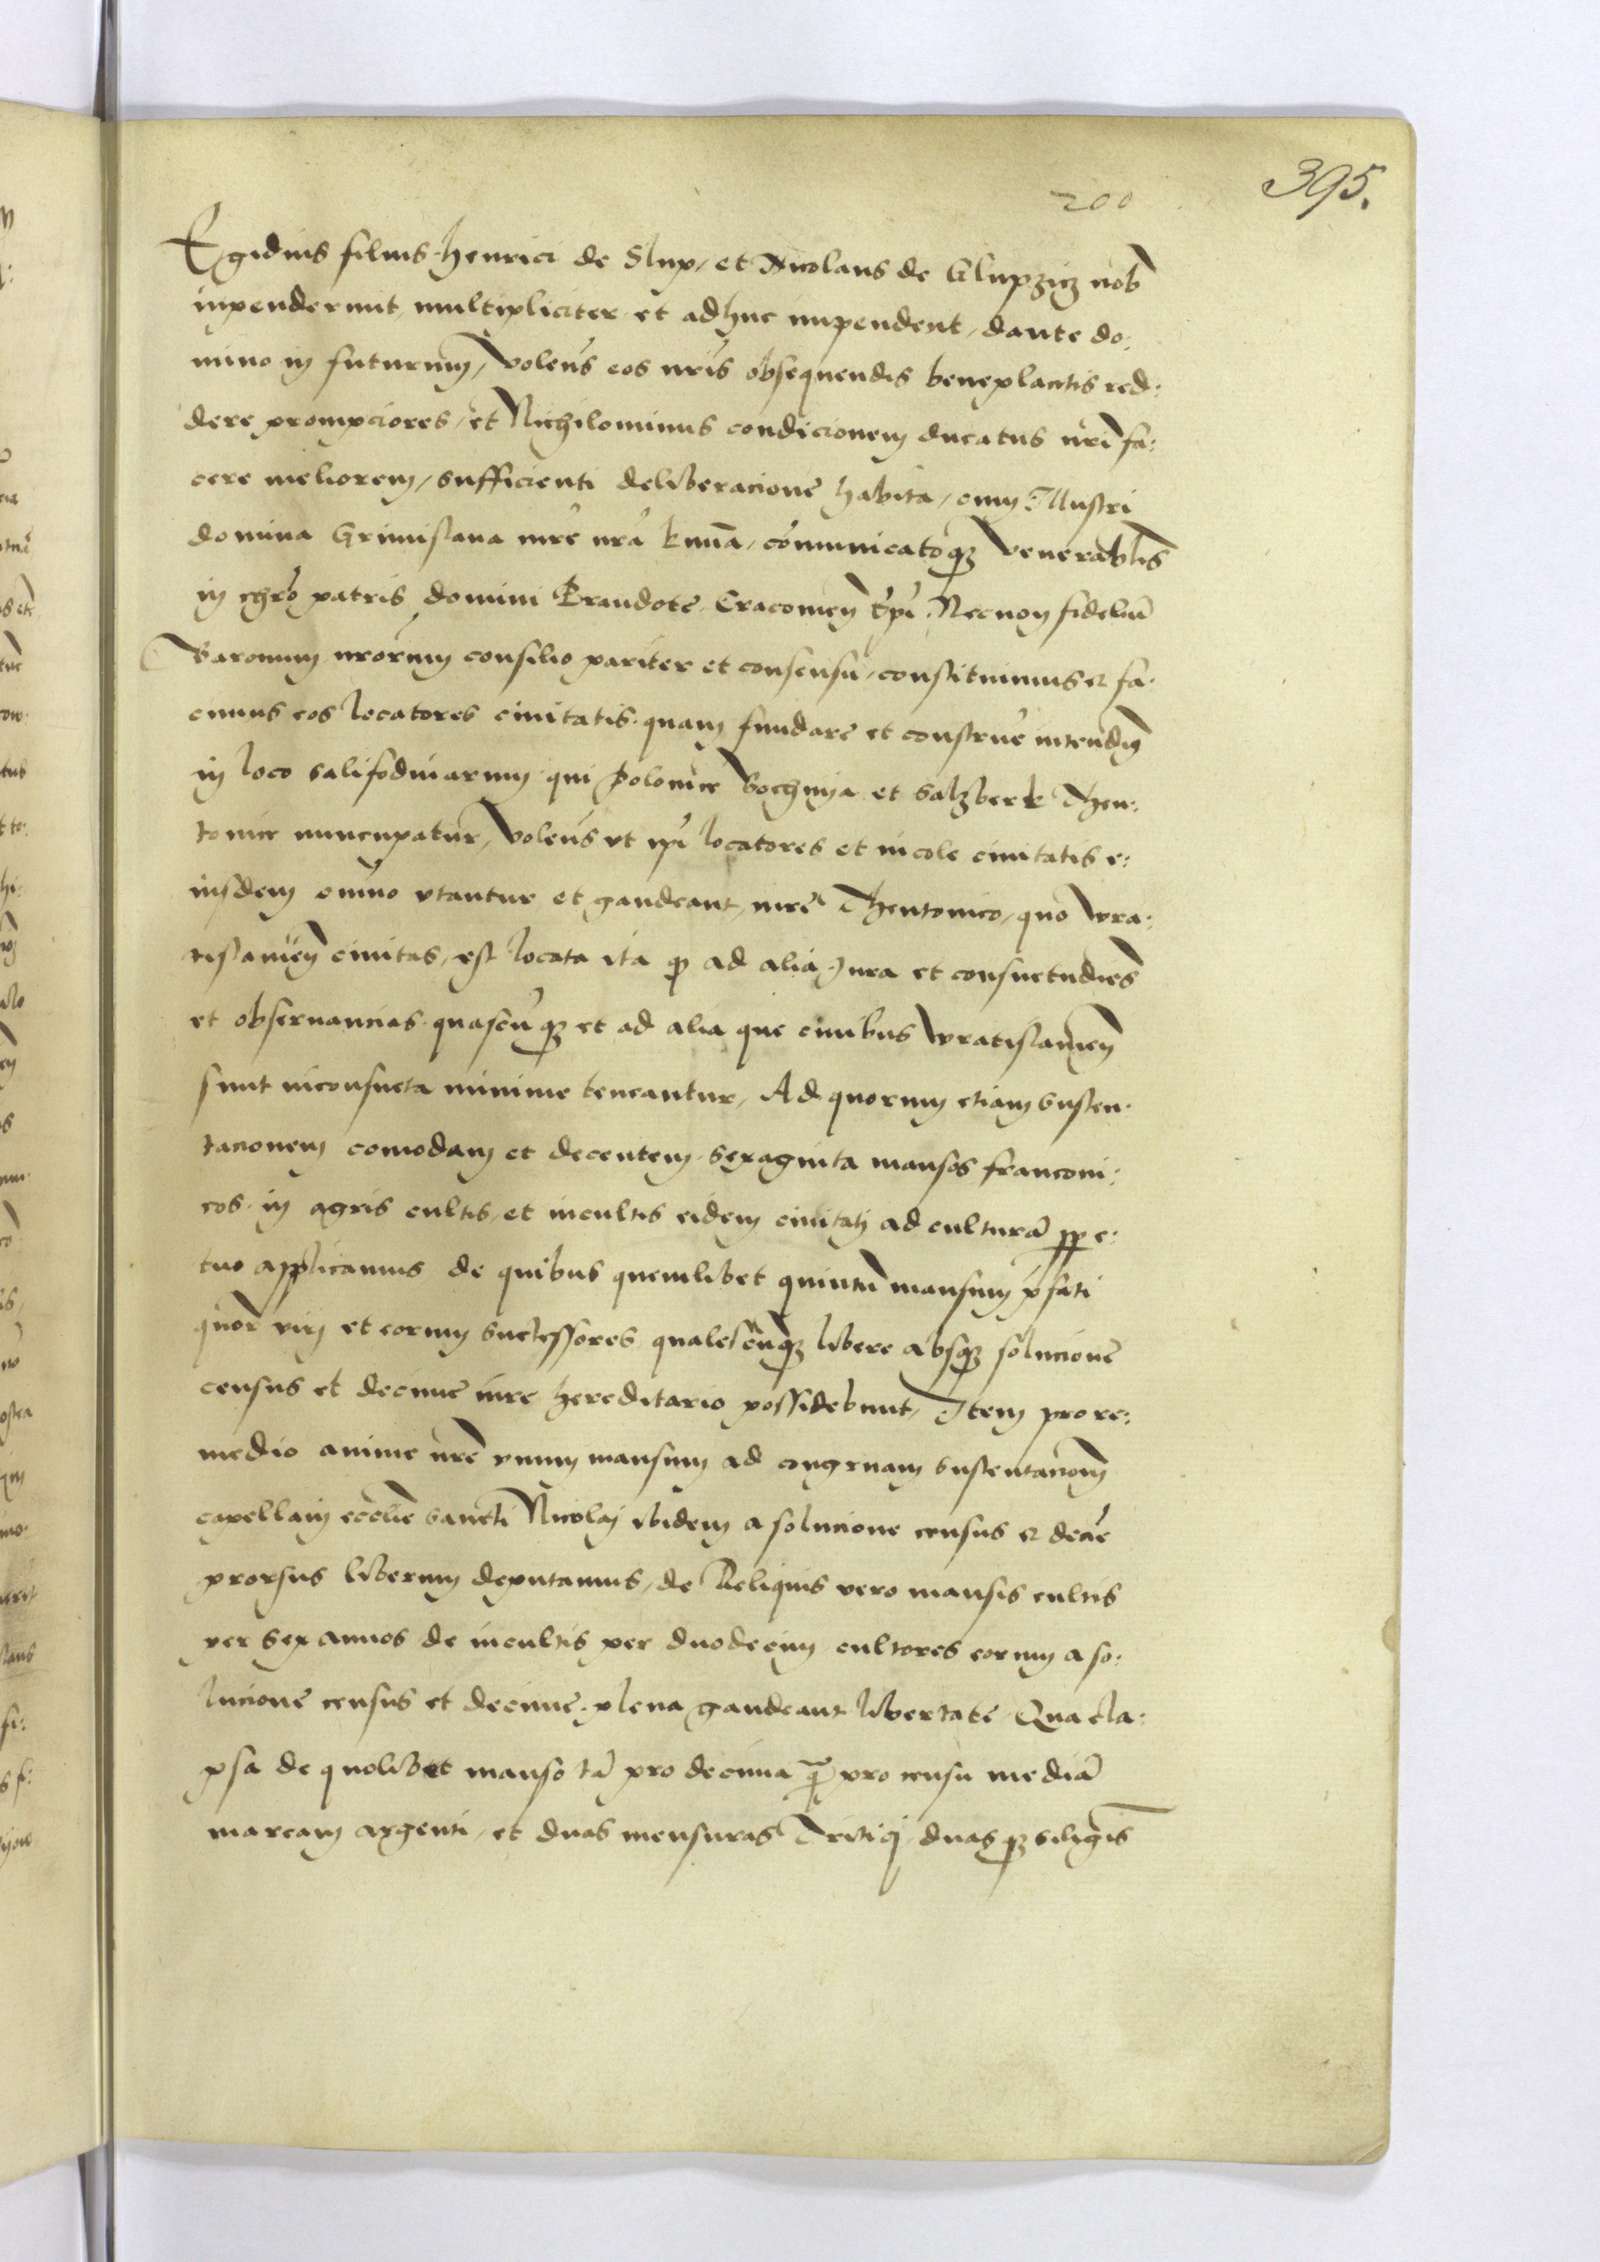 395.
200
Egidius filius henrici de Slup, et Nicolaus de Glupziez nob̄
inpenderunt multipliciter et adhuc impendent, dante do:
mino in futurum, volen̄s eos nr̄is obsequendis beneplacitis red:
dere prompciores, et Nichilominus condicionem ducatus nr̄i fa:
cere meliorem, sufficienti deliberacione habita, cum Illustri
domina Grimislaua mr̄e nr̄a kr̄ma, com̄unicatoq; venerabilis
in chr̄o patris domini Prandote Cracouien̄ ep̄i Necnon fideliū
Baronum nrōrum consilio pariter et consensu, constituimus et fa:
cimus eos locatores ciuitatis quam fundare et construēr intendim̄
in loco salifodinarum qui polonice Bochnya et Salzberk Theu:
tonice nuncupatur, volen̄s vt ip̄i locatores et incole ciuitatis e:
iusdem omino vtantur et gaudeant iure Theutonico, quo wra:
tislauien̄ ciuitas, est locata ita q̄ ad alia Jura et consuetudies
et obseruancias quascūq; et ad alia que ciuibus wratislauien̄
sunt inconsueta minime teneantur, Ad quorum etiam susten:
tacionem comodam et decentem sexaginta mansos franconi:
cos in agris cultis, et incultis eidem ciuitati ad culturā ppe:
tuo applicamus de quibus quemlibet quintū mansum p̄fati
quor̄ viri et eorum successores qualescūq; libere absq; solucione
census et decime iure hereditario possidebunt, Item pro re:
medio anime nr̄e vnum mansum ad congruam sustentacionem̄
capellani ecclīe sancti Nicolaj ibidem a solucione census et decīe
prorsus liberum deputamus, de Reliquis vero mansis cultis
per sex annos de incultis per duodecim cultores eorum a so:
lucione census et decime plena gaudeant libertate Qua ela:
psa de quolibet manso tā pro decima q̄ pro censu mediā
marcam argenti, et duas mensuras Tritici duasq; siligīs